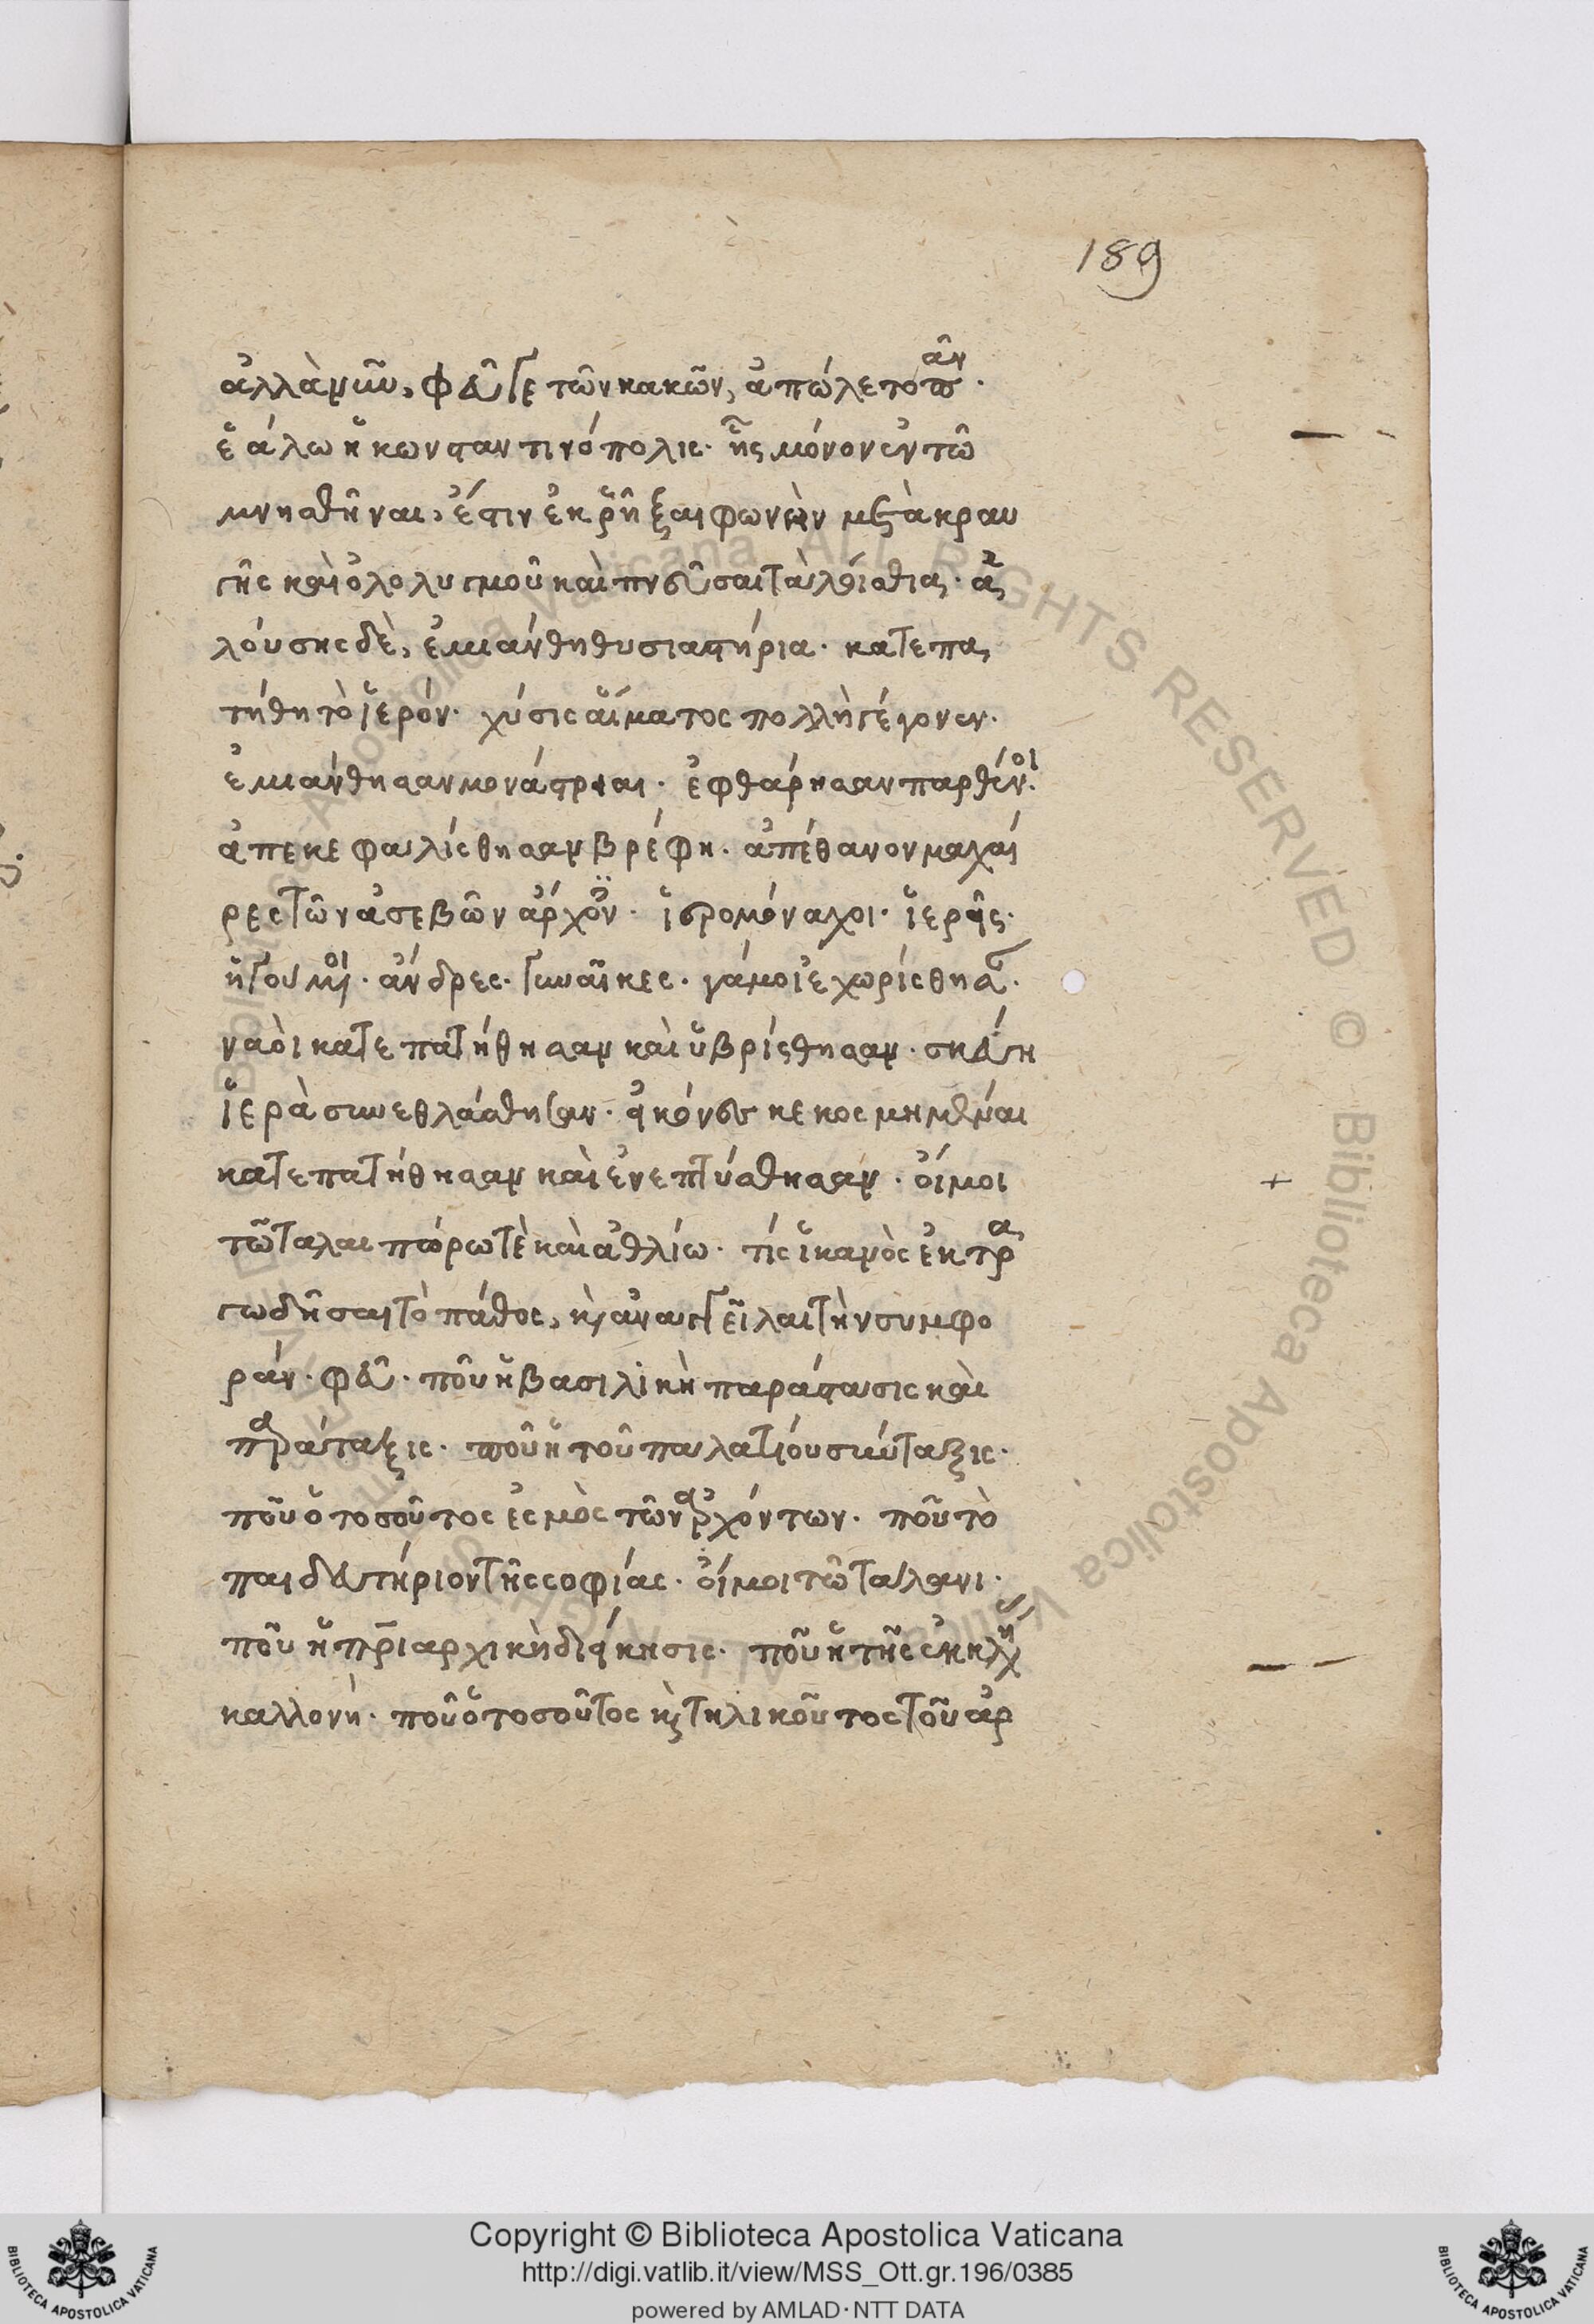 189
ἀλλὰ νῦν, φεῦ γε τῶν κακῶν, ἀπώλετο πᾶν·
ἑάλω ἡ κωνσταντινόπολις· ἧς μόνον ἐν τῶ
μνησθῆναι, ἔστιν ἐκρῆξαι φωνὴν μετὰ κραυ
γῆς καὶ ὀλολυγμοῦ καὶ πνεῦσαι τὰ λοίσθια· ἁ
λούσης δὲ, ἐμιάνθη θυσιαστήρια· κατεπα
τήθη τὸ ἱερόν· χύσις αἵματος πολλὴ γέγονεν·
ἐμιάνθησαν μονάστριαι· ἐφθάρησαν παρθένοι·
ἀπεκεφαλίσθησαν βρέφη· ἀπέθανον μαχαί
ρες τῶν ἀσεβῶν ἀρχον· ἱερομόναχοι· ἱερεῖς·
ἡγούμενοι· ἄνδρες· γυναῖκες· γάμοι ἐχωρίσθησαν·
ναὸι κατεπατήθησαν καὶ ὑβρίσθησαν· σκεύη
ἱερὰ συνεθλάσθησαν· εἰκόνες κεκοσμημέναι
κατεπατήθησαν καὶ ἐνεπτύσθησαν· οἴμοι
τῶ ταλαιπόρω τὲ καὶ ἀθλίω· τίς ἱκανὸς ἐκτρα
γωδῆσαι τὸ πάθος, κ̀ ἀναγγεῖλαι τὴν συμφο
ράν· φεῦ· ποῦ ἡ βασιλικὴ παράστασις καὶ
παράταξις· ποῦ ἡ τοῦ παλατίου σύνταξις·
ποῦ ὁ τοσοῦτος ἐσμὸς τῶν ἀρχόντων· ποῦ τὸ
παιδευτήριον τῆς σοφίας· οἴμοι τῶ ταλανι·
ποῦ ἡ πρ̅ιαρχικὴ διοίκησις· ποῦ ἡ τῆς ἐκκλη
καλλονή· ποῦ ὁ τοσοῦτος κ̀ τηλικοῦτος τοῦ ἀρ
Copyright © Biblioteca Apostolica Vaticana
http://digi.vatlib.it/view/MSS_Ott.gr.196/0385
powered by AMLAD·NTT DATA
BIBLIOTECA APOSTOLICA VATICANA
BIBLIOTECA APOSTOLICA VATICANA
Biblioteca Apostolica Vaticana ALL RIGHTS RESERVED © Biblioteca Apostolica Vaticana